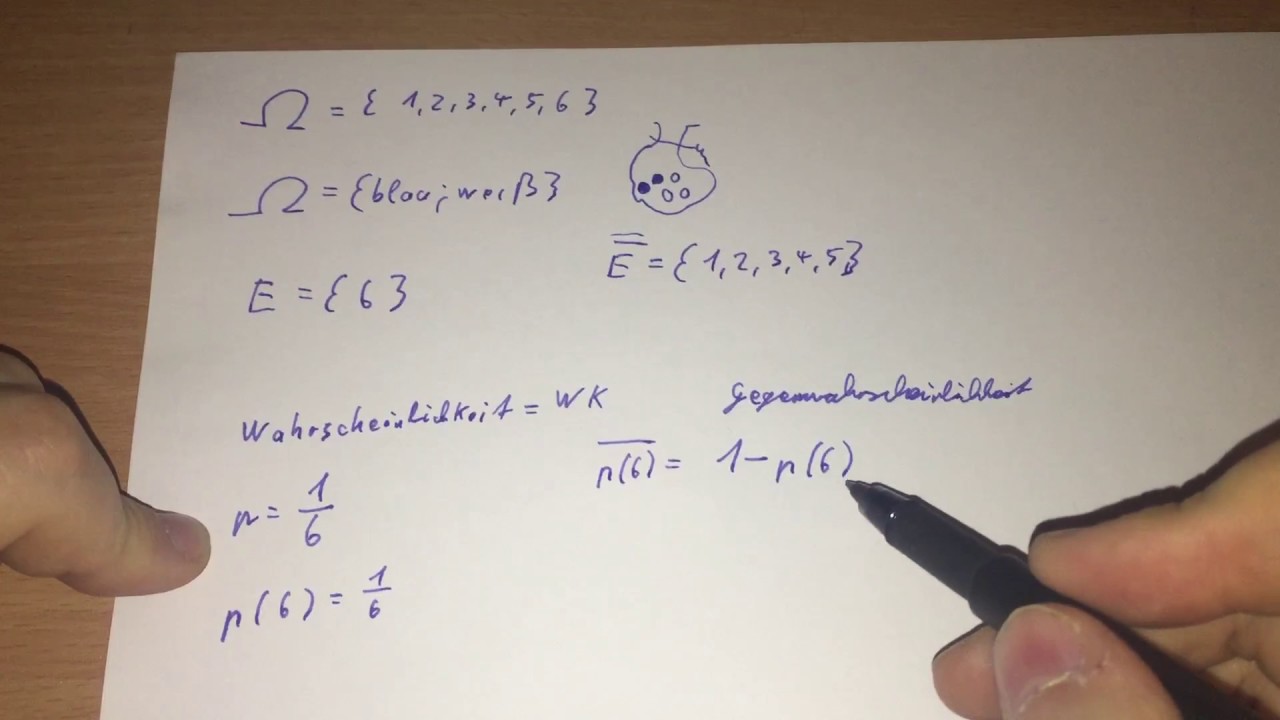 Ω = { 1, 2, 3, 4, 5, 6 }
Ω = {blau; weiß}
E = { 6 }
E̿ = { 1, 2, 3, 4, 5}
Wahrscheinlichkeit = WK
Gegenwahrscheinlichkeit
p = 1/6
p̅(̅6̅)̅ = 1 - p(6)
p(6) = 1/6